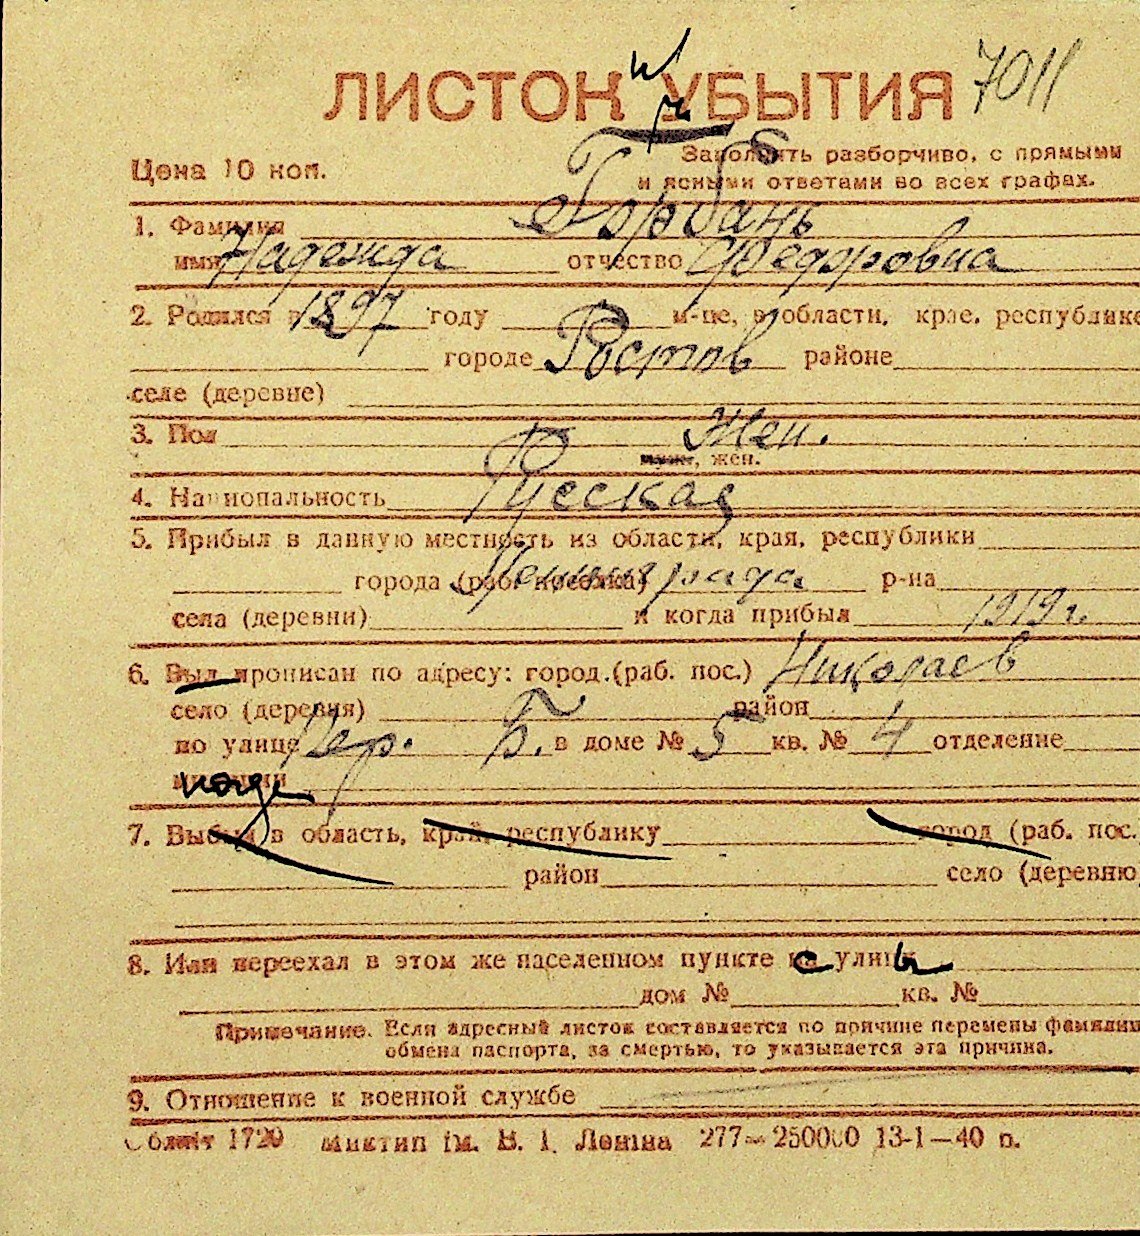 ЛИСТОК УБЫТИЯ 7011
Цена 10 коп.
Заполнять разборчиво, с прямыми
и ясными ответами во всех графах.
1. Фамилия Горбань
имя Надежда отчество Федоровна
2. Родился в 1897 году м-це, в области, крае, республике
городе Ростов районе
селе (деревне)
3. Пол Жен.
муж., жен.
4. Национальность Русская
5. Прибыл в данную местность из области, края, республики
города (раб. поселка) Ленинграда р-на
села (деревни) и когда прибыл 1919 г.
6. Был прописан по адресу: город (раб. пос.) Николаев
село (деревня) район
по улице Пер. Б. в доме № 5 кв. № 4 отделение
милиции
7. Выбыл в область, край, республику город (раб. пос.
район село (деревню
8. Или переехал в этом же населенном пункте с улицы
дом № кв. №
Примечание. Если адресный листок составляется по причине перемены фамилии
обмена паспорта, за смертью, то указывается эта причина.
9. Отношение к военной службе
Обліт 1720 Миктип ім. В. І. Леніна 277—250000 13-1—40 п.